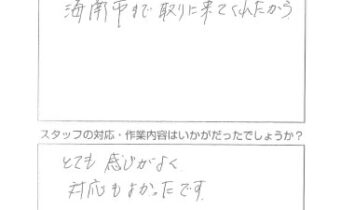 海南市まで取りに来てくれたから
スタッフの対応・作業内容はいかがだったでしょうか？
とても感じがよく
対応もよかったです